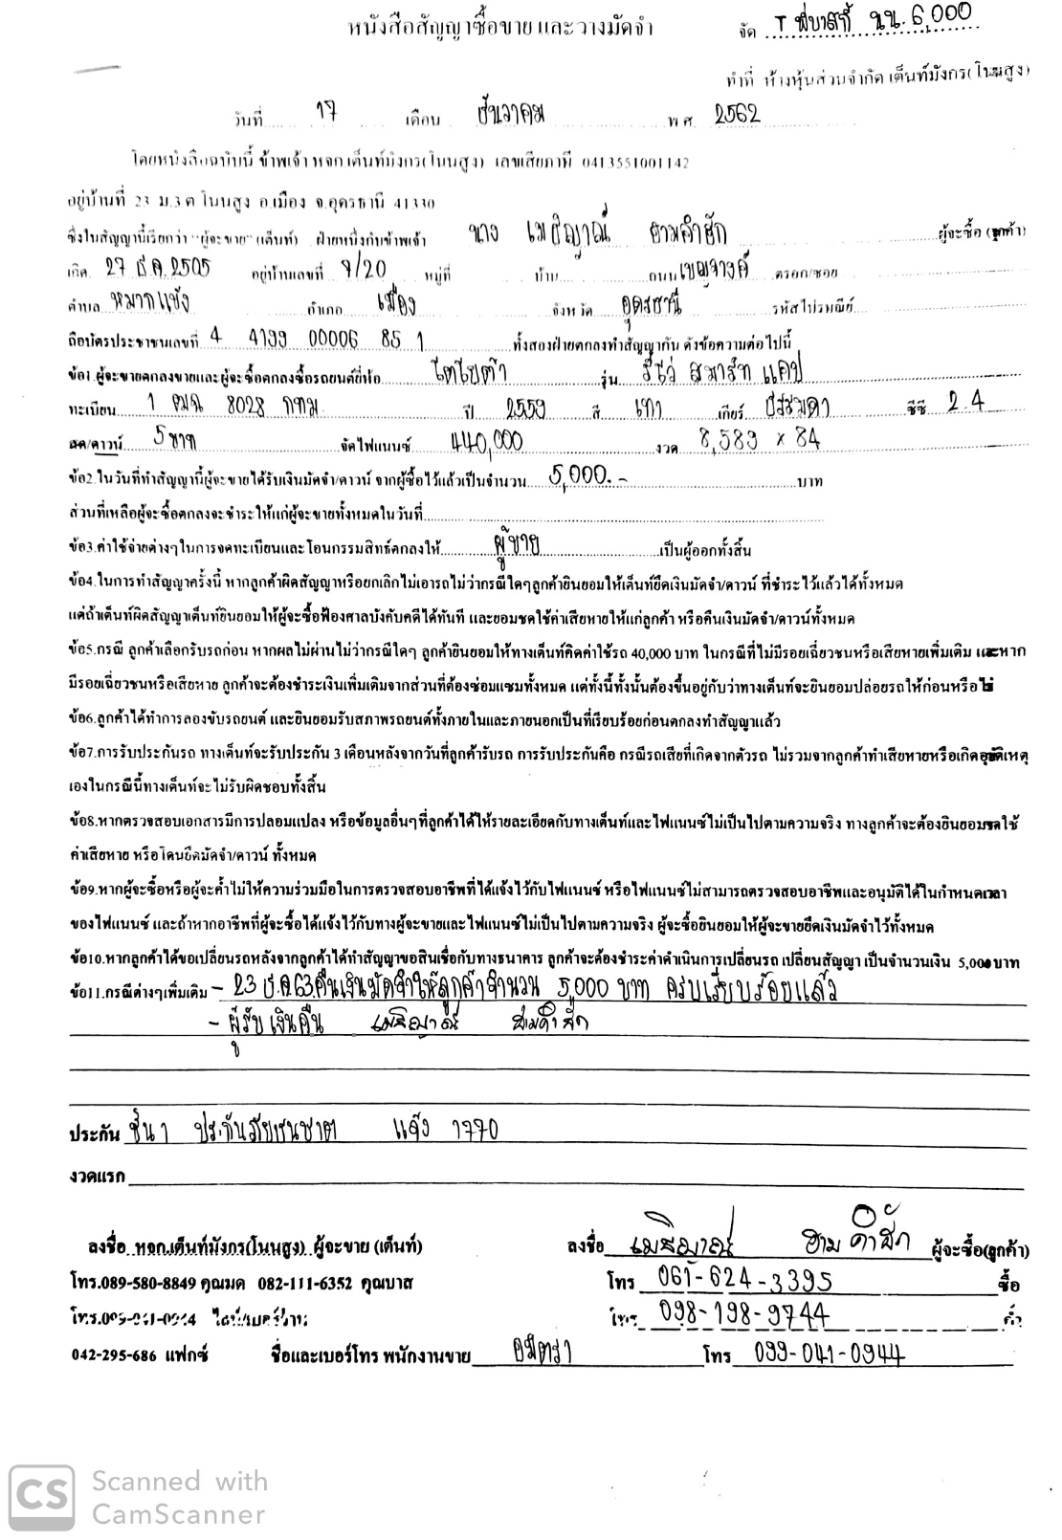 หนังสือสัญญาซื้อขาย และวางมัดจำ
จัด T พี่บาสกี้ นน. 6,000
ทำที่ ห้างหุ้นส่วนจำกัด เต็นท์มังกร(โนนสูง)
วันที่ 17 เดือน ธันวาคม พ.ศ. 2562
โดยหนังสือฉบับนี้ ข้าพเจ้า หจก.เต็นท์มังกร(โนนสูง) เลขเสียภาษี 0413551001142
อยู่บ้านที่ 23 ม.3 ต.โนนสูง อ.เมือง จ.อุดรธานี 41330
ซึ่งในสัญญานี้เรียกว่า "ผู้จะขาย" (เต็นท์) ฝ่ายหนึ่งกับข้าพเจ้า นาง เมธิญาณ์ ฮามคำฮัก ผู้จะซื้อ (ลูกค้า)
เกิด 27 ธ.ค. 2505 อยู่บ้านเลขที่ 9/20 หมู่ที่ บ้าน ถนน เบญจางค์ ตรอก/ซอย
ตำบล หมากแข้ง อำเภอ เมือง จังหวัด อุดรธานี รหัสไปรษณีย์
ถือบัตรประชาชนเลขที่ 4 4199 00006 85 1 ทั้งสองฝ่ายตกลงทำสัญญากัน ดังข้อความต่อไปนี้
ข้อ1.ผู้จะขายตกลงขายและผู้จะซื้อตกลงซื้อรถยนต์ยี่ห้อ โตโยต้า รุ่น รีโว่ สมาร์ท แคป
ทะเบียน 1 ฒฌ 8028 กทม ปี 2559 สี เทา เกียร์ ธรรมดา ซีซี 2.4
สด/ดาวน์ 5 บาท จัดไฟแนนซ์ 440,000 งวด 8,589 x 84
ข้อ2.ในวันที่ทำสัญญานี้ผู้จะขายได้รับเงินมัดจำ/ดาวน์ จากผู้ซื้อไว้แล้วเป็นจำนวน 5,000.- บาท
ส่วนที่เหลือผู้จะซื้อตกลงจะชำระให้แก่ผู้จะขายทั้งหมดในวันที่
ข้อ3.ค่าใช้จ่ายต่างๆในการจดทะเบียนและโอนกรรมสิทธิ์ตกลงให้ ผู้ขาย เป็นผู้ออกทั้งสิ้น
ข้อ4.ในการทำสัญญาครั้งนี้ หากลูกค้าผิดสัญญาหรือยกเลิกไม่เอารถไม่ว่ากรณีใดๆลูกค้ายินยอมให้เต็นท์ยึดเงินมัดจำ/ดาวน์ ที่ชำระไว้แล้วได้ทั้งหมด
แต่ถ้าเต็นท์ผิดสัญญาเต็นท์ยินยอมให้ผู้จะซื้อฟ้องศาลบังคับคดีได้ทันที และยอมชดใช้ค่าเสียหายให้แก่ลูกค้า หรือคืนเงินมัดจำ/ดาวน์ทั้งหมด
ข้อ5.กรณี ลูกค้าเลือกรับรถก่อน หากผลไม่ผ่านไม่ว่ากรณีใดๆ ลูกค้ายินยอมให้ทางเต็นท์คิดค่าใช้รถ 40,000 บาท ในกรณีที่ไม่มีรอยเฉี่ยวชนหรือเสียหายเพิ่มเติม และหาก
มีรอยเฉี่ยวชนหรือเสียหาย ลูกค้าจะต้องชำระเงินเพิ่มเติมจากส่วนที่ต้องซ่อมแซมทั้งหมด แต่ทั้งนี้ทั้งนั้นต้องขึ้นอยู่กับว่าทางเต็นท์จะยินยอมปล่อยรถให้ก่อนหรือไม่
ข้อ6.ลูกค้าได้ทำการลองขับรถยนต์ และยินยอมรับสภาพรถยนต์ทั้งภายในและภายนอกเป็นที่เรียบร้อยก่อนตกลงทำสัญญาแล้ว
ข้อ7.การรับประกันรถ ทางเต็นท์จะรับประกัน 3 เดือนหลังจากวันที่ลูกค้ารับรถ การรับประกันคือ กรณีรถเสียที่เกิดจากตัวรถ ไม่รวมจากลูกค้าทำเสียหายหรือเกิดอุบัติเหตุ
เองในกรณีนี้ทางเต็นท์จะไม่รับผิดชอบทั้งสิ้น
ข้อ8.หากตรวจสอบเอกสารมีการปลอมแปลง หรือข้อมูลอื่นๆที่ลูกค้าได้ให้รายละเอียดกับทางเต็นท์และไฟแนนซ์ไม่เป็นไปตามความจริง ทางลูกค้าจะต้องยินยอมชดใช้
ค่าเสียหาย หรือโดนยึดมัดจำ/ดาวน์ ทั้งหมด
ข้อ9.หากผู้จะซื้อหรือผู้จะค้ำไม่ให้ความร่วมมือในการตรวจสอบอาชีพที่ได้แจ้งไว้กับไฟแนนซ์ หรือไฟแนนซ์ไม่สามารถตรวจสอบอาชีพและอนุมัติได้ในกำหนดเวลา
ของไฟแนนซ์ และถ้าหากอาชีพที่ผู้จะซื้อได้แจ้งไว้กับทางผู้จะขายและไฟแนนซ์ไม่เป็นไปตามความจริง ผู้จะซื้อยินยอมให้ผู้จะขายยึดเงินมัดจำไว้ทั้งหมด
ข้อ10.หากลูกค้าได้ขอเปลี่ยนรถหลังจากลูกค้าได้ทำสัญญาขอสินเชื่อกับทางธนาคาร ลูกค้าจะต้องชำระค่าดำเนินการเปลี่ยนรถ เปลี่ยนสัญญา เป็นจำนวนเงิน 5,000 บาท
ข้อ11.กรณีต่างๆเพิ่มเติม - 23 ธ.ค.63 คืนเงินมัดจำให้ลูกค้าจำนวน 5,000 บาท ครบเรียบร้อยแล้ว
- ผู้รับเงินคืน เมธิญาณ์ ฮามคำฮัก
ประกัน ชั้น 1 ประกันภัยธนชาต แจ้ง 1770
งวดแรก
ลงชื่อ หจก.เต็นท์มังกร(โนนสูง) ผู้จะขาย (เต็นท์) ลงชื่อ เมธิญาณ์ ฮามคำฮัก ผู้จะซื้อ(ลูกค้า)
โทร.089-580-8849 คุณมด 082-111-6352 คุณบาส โทร 061-624-3395 ซื้อ
โทร.099-041-0944 ไลน์/เบอร์ร้าน โทร 098-198-9744 ค้ำ
042-295-686 แฟกซ์ ชื่อและเบอร์โทร พนักงานขาย อมิตรา โทร 099-041-0944
CS Scanned with
CamScanner